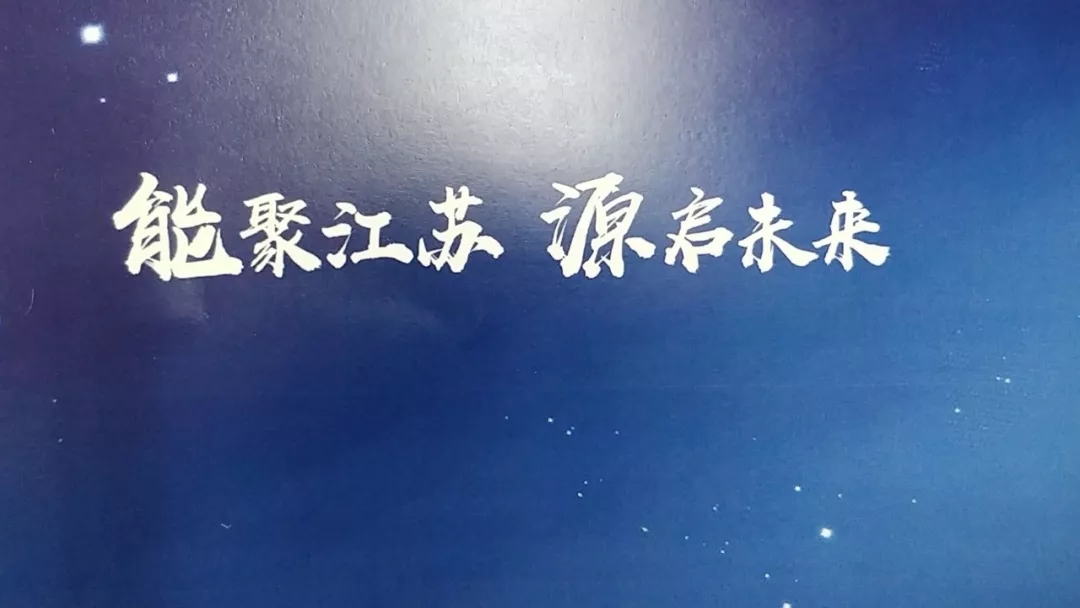 能聚江苏 源启未来